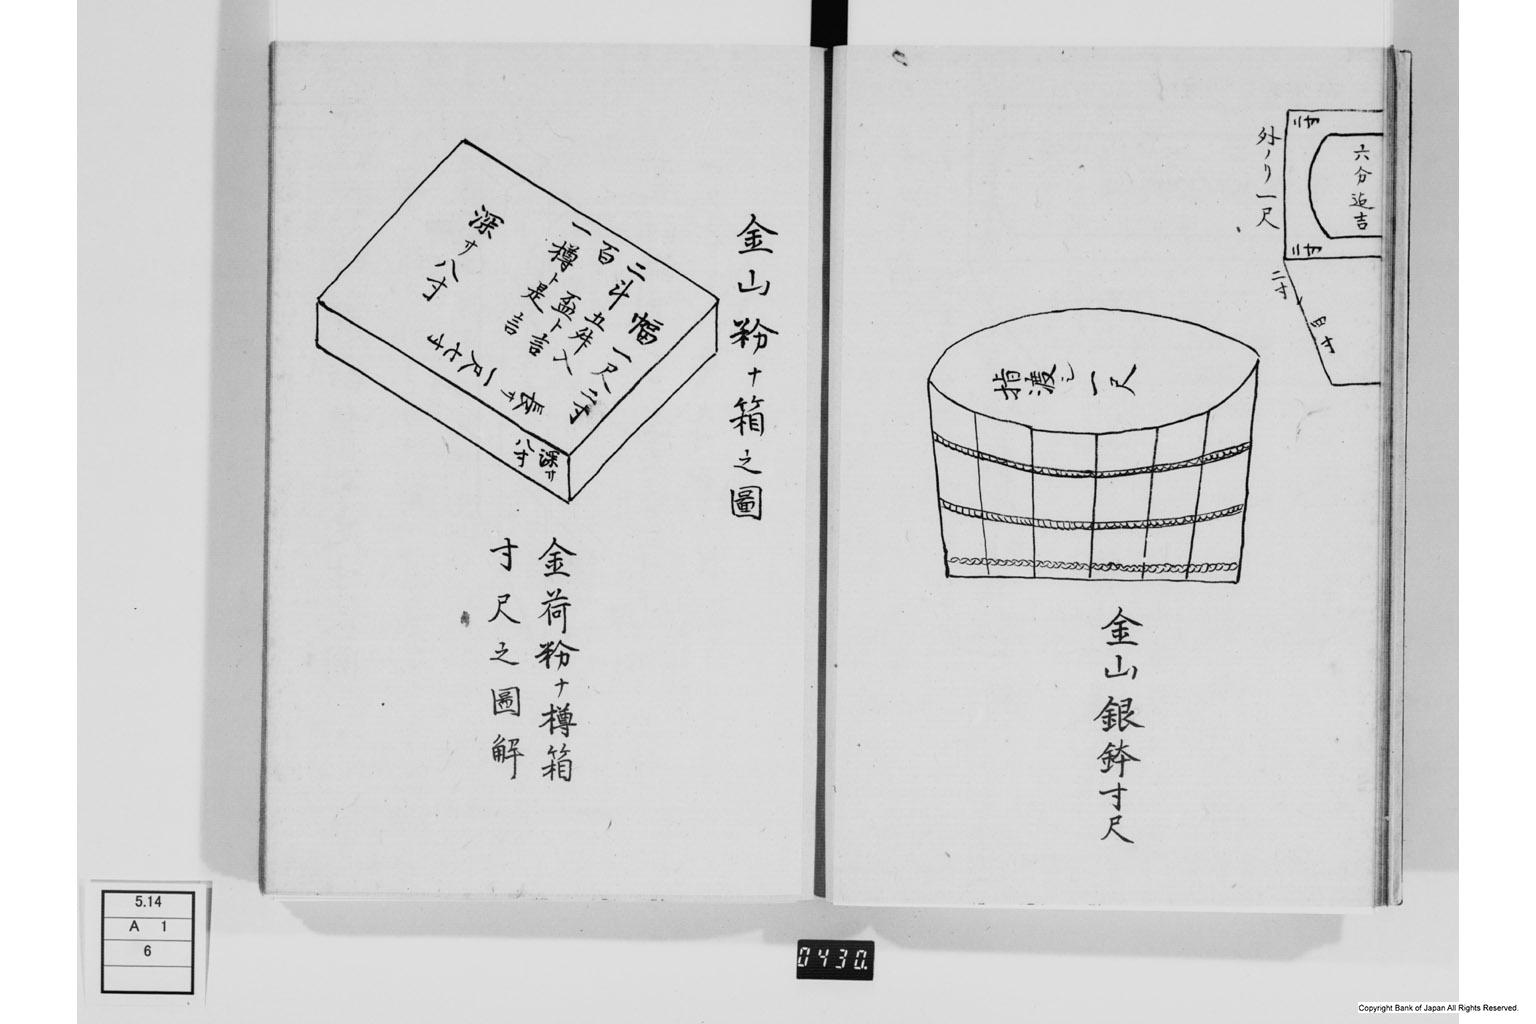 二寸
六分
吉
外ノリ一尺
二寸
二寸
指渡シ一尺
金山銀鉢寸尺
金山粉ナ箱之圖
幅一尺二寸
二斗五舛入
百盃ト言
一樽ト是言
深サ八寸
長サ一尺七寸
深サ
八寸
金荷粉ナ樽箱
寸尺之圖解
5.14
A 1
6
0430.
Copyright Bank of Japan All Rights Reserved.